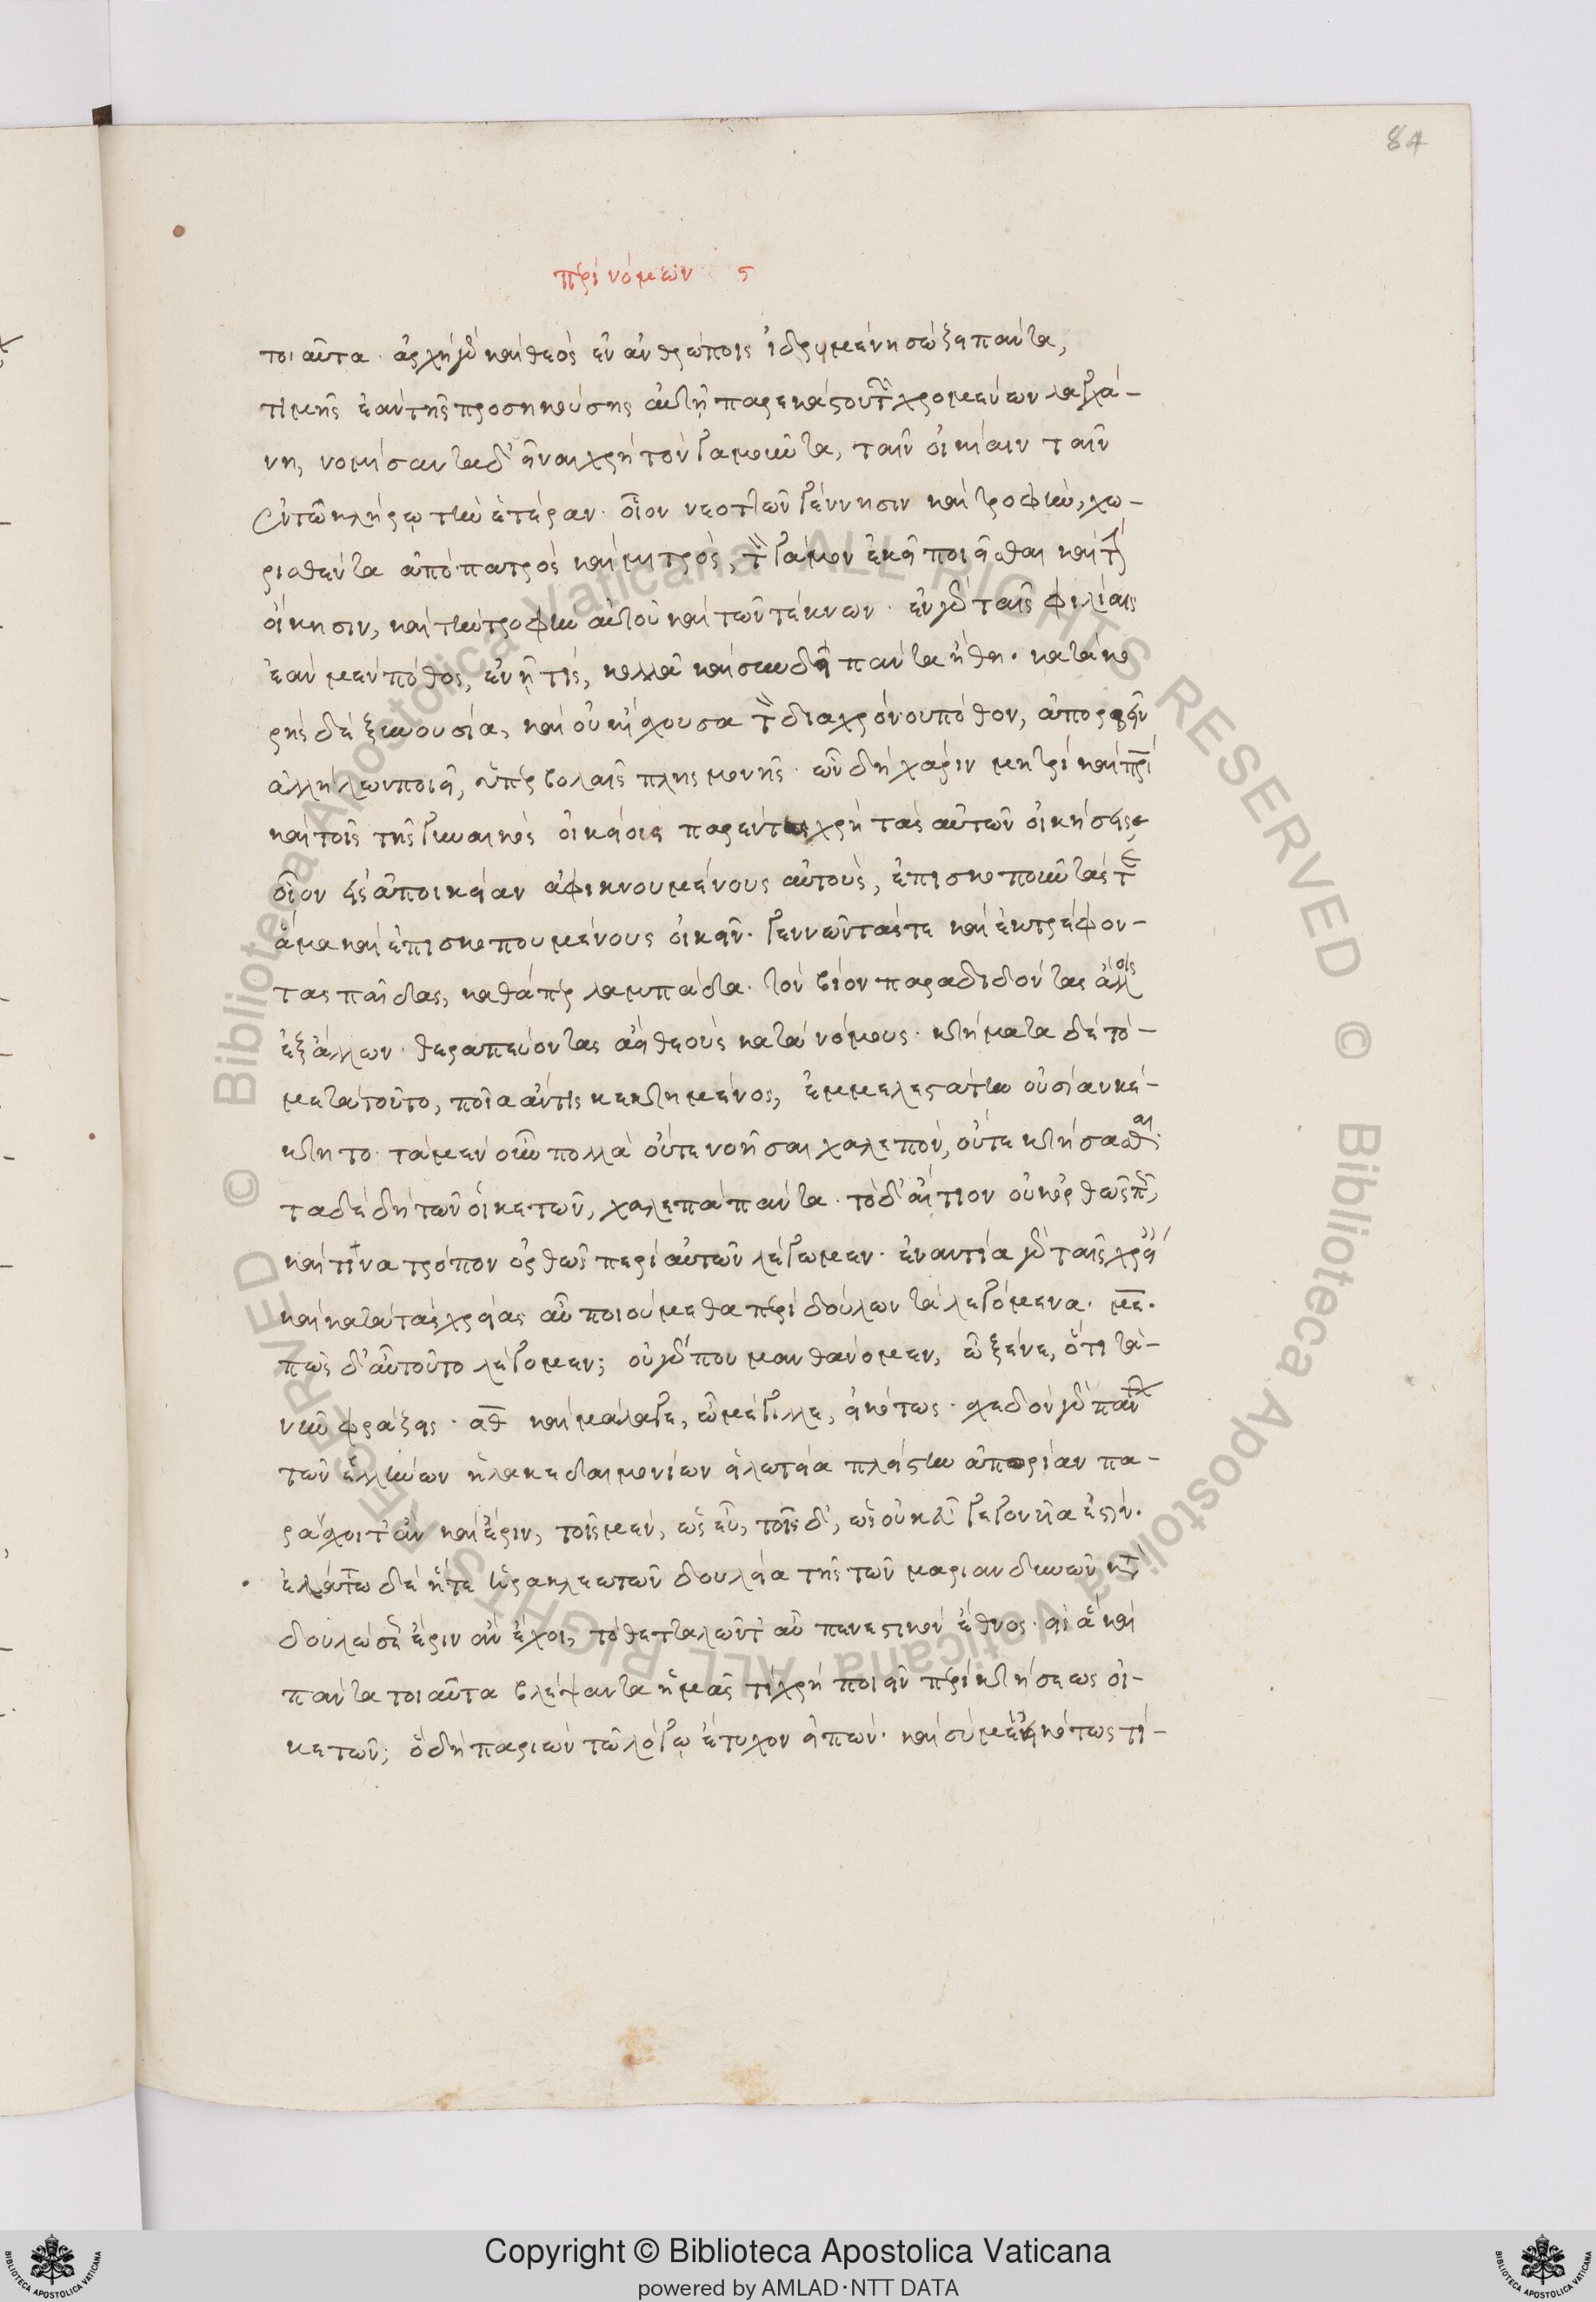 84
περὶ νόμων ϛ
τοιαῦτα· ἀρχὴ γὰρ καὶ θεὸς ἐν ἀνθρώποις ἱδρυμένη σώζει πάντα,
τιμῆς ἐὰν τῆς προσηκούσης αὐτῇ παρ' ἑκάστου τῶν χρωμένων λαγχά-
νῃ, νομίσαντα δ' εἶναι χρὴ τὸν γαμοῦντα, ταῖν οἰκίαιν ταῖν
ἐν τῷ κλήρῳ τὴν ἑτέραν· οἷον νεοττῶν γέννησιν καὶ τροφὴν, χω-
ρισθέντα ἀπὸ πατρὸς καὶ μητρὸς, τὸν γάμον ἐκεῖ ποιεῖσθαι καὶ τὴν
οἴκησιν, καὶ τὴν τροφὴν αὐτοῦ καὶ τῶν τέκνων· ἐν γὰρ ταῖς φιλίαις
ἐὰν μὲν πόθος, ἐνῇ τὶς, κολλᾷ καὶ συνδεῖ πάντα ἤθη· κατακο
ρὴς δὲ ξυνουσία, καὶ οὐκ ἴσχουσα τὸν διὰ χρόνου πόθον, ἀπορρεῖν
ἀλλήλων ποιεῖ, ὑπερβολαῖς πλησμονῆς· ὧν δὴ χάριν μητρὶ καὶ πρὶ
καὶ τοῖς τῆς γυναικὸς οἰκείοις παρέντας χρὴ τὰς αὑτῶν οἰκήσεις,
οἷον εἰς ἀποικίαν ἀφικνουμένους αὐτοὺς, ἐπισκοποῦντάς τε
ἅμα καὶ ἐπισκοπουμένους οἰκεῖν· γεννῶντάς τε καὶ ἐκτρέφον-
τας παῖδας, καθάπερ λαμπάδα τὸν βίον παραδιδόντας ἄλλοις
ἐξ ἄλλων· θεραπεύοντας ἀεὶ θεοὺς κατὰ νόμους· κτήματα δὲ τὸ-
μετὰ τοῦτο, ποῖα ἄν τις κεκτημένος, ἐμμελεστάτην οὐσίαν κέ-
κτητο· τὰ μὲν οὖν πολλὰ οὔτε νοῆσαι χαλεπὸν, οὔτε κτήσασθαι·
τὰ δὲ δὴ τῶν οἰκετῶν, χαλεπὰ πάντα· τὸ δ' αἴτιον οὐκ ὀρθῶς πως,
καὶ τινὰ τρόπον ὀρθῶς περὶ αὐτῶν λέγωμεν· ἐναντία γὰρ ταῖς χρείαις
καὶ κατὰ τὰς χρείας αὖ ποιούμεθα περὶ δούλων τὰ λεγόμενα· με·
πῶς δ' αὖ τοῦτο λέγομεν; οὐ γάρ που μανθάνομεν, ὦ ξένε, ὅτι τὰ-
νῦν φράζεις· αθ καὶ μάλα γε, ὦ μέγιλλε, εἰκότως· σχεδὸν γὰρ πάντων
τῶν ἑλλήνων ἡ λακεδαιμονίων εἱλωτεία πλείστην ἀπορίαν πα-
ράσχοιτ' ἂν καὶ ἔριν, τοῖς μὲν, ὡς εὖ, τοῖς δ', ὡς οὐκ εὖ γεγονυῖα ἐστίν·
ἐλάττω δὲ ἥ τε ἡρακλεωτῶν δουλεία τῆς τῶν μαριανδυνῶν κατα
δουλώσεως ἔριν ἂν ἔχοι, τὸ θετταλῶν τ' αὖ πενεστικὸν ἔθνος· εἰς ἃ καὶ
πάντα τοιαῦτα βλέψαντα ἡμᾶς τί χρὴ ποιεῖν περὶ κτήσεως οἰ-
κετῶν; ὃ δὴ παριὼν τῷ λόγῳ ἔτυχον εἰπών· καὶ σύ με εἰκότως τί-
Copyright © Biblioteca Apostolica Vaticana
powered by AMLAD·NTT DATA